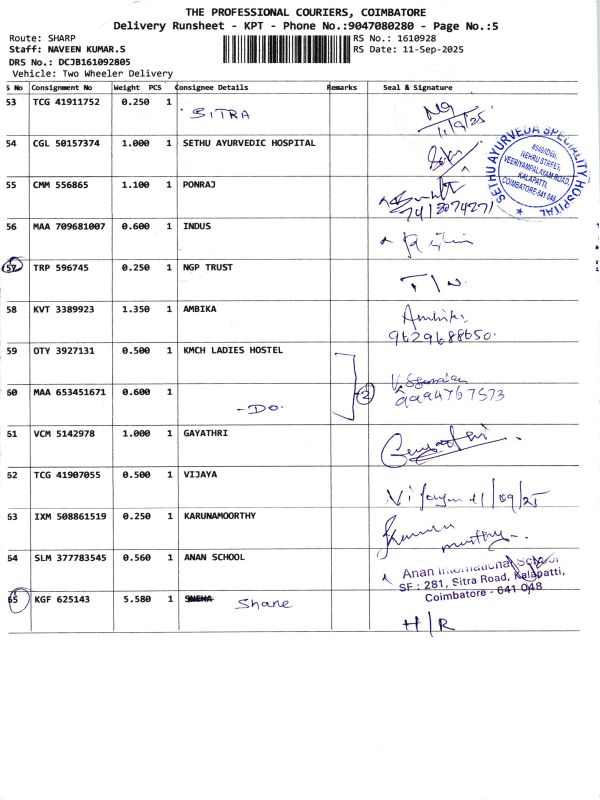 THE PROFESSIONAL COURIERS, COIMBATORE
Delivery Runsheet - KPT - Phone No.:9047080280 - Page No.:5
Route: SHARP
RS No.: 1610928
Staff: NAVEEN KUMAR.S
RS Date: 11-Sep-2025
DRS No.: DCJB161092805
Vehicle: Two Wheeler Delivery
S No Consignment No Weight PCS Consignee Details Remarks Seal & Signature
53 TCG 41911752 0.250 1 SITRA
11/9/25
54 CGL 50157374 1.000 1 SETHU AYURVEDIC HOSPITAL
SETHU AYURVEDA SPECIALITY HOSPITAL
NEHRU STREET,
VEERIYAMPALAYAM ROAD,
KALAPATTI,
COIMBATORE-641 048
55 CMM 556865 1.100 1 PONRAJ
7412074271
56 MAA 709681007 0.600 1 INDUS
57 TRP 596745 0.250 1 NGP TRUST
58 KVT 3389923 1.350 1 AMBIKA
Ambika
9629688650.
59 OTY 3927131 0.500 1 KMCH LADIES HOSTEL
60 MAA 653451671 0.600 1 -Do. 2
9994767573
61 VCM 5142978 1.000 1 GAYATHRI
62 TCG 41907055 0.500 1 VIJAYA
11/09/25
63 IXM 508861519 0.250 1 KARUNAMOORTHY
64 SLM 377783545 0.560 1 ANAN SCHOOL
Anan International School
SF : 281, Sitra Road, Kalapatti,
Coimbatore - 641 048
65 KGF 625143 5.580 1 SNEHA Shane
H/R